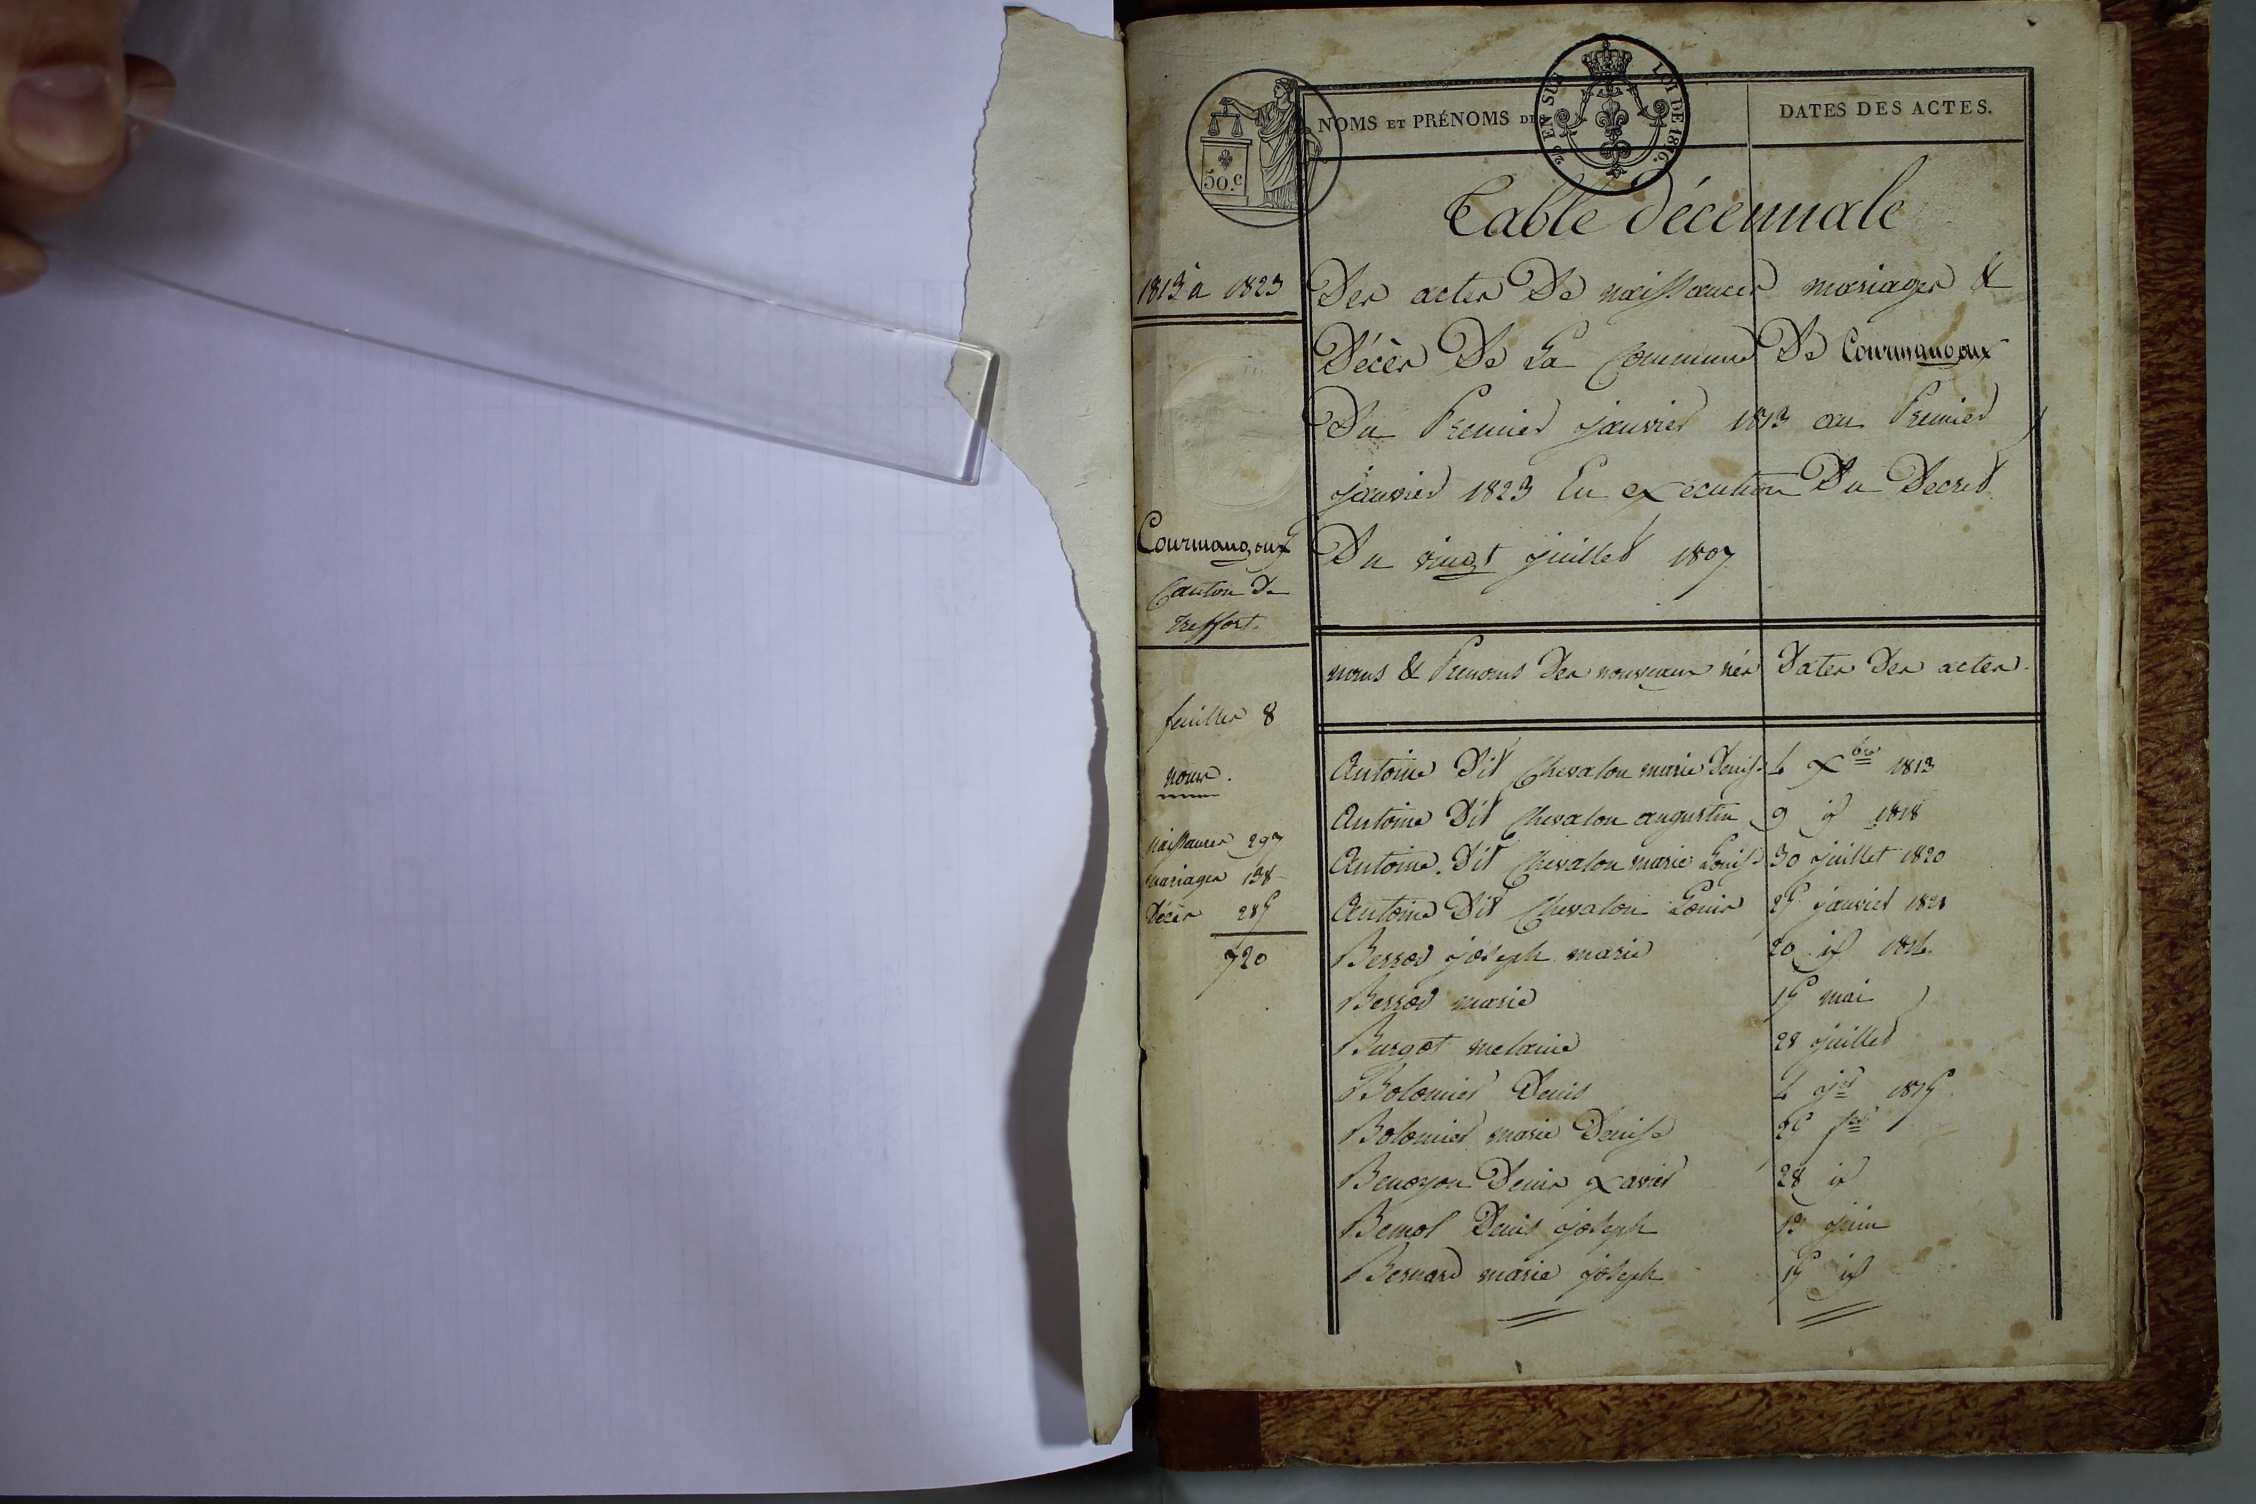 NOMS ET PRÉNOMS DE
DATES DES ACTES.
50.c
EN SUS
LOI DE 1816.
Table décennale
1813 à 1823
Des actes De naissances mariages &
Décès De La Commune De Courmangoux
Du Premier janvier 1813 au Premier
janvier 1823 En exécution Du Decret
Du vingt juillet 1807
Courmangoux
Canton De
Treffort.
noms & Prenoms Des nouveaux nés
Dates Des actes.
feuilles 8
noms.
naissances 297
mariages 138
Décès 285
720
Antoine Dit Chevalon marie Denise 4 Xbre 1813
Antoine Dit Chevalon augustin 9 id 1818
Antoine Dit Chevalon marie Louise 30 juillet 1820
Antoine Dit Chevalon Louis 25 janvier 1821
Berrod joseph marie 20 id 1814
Berrod marie 15 mai
Burgot melanie 28 juillet
Bolomier Denis 4 jer 1815
Bolomier marie Denise
Benoyon Denis Xavier 28 id
Bemol Denis joseph juin
Bernard marie joseph 15 id